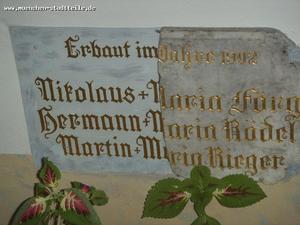 www.muenchen-stadtteile.de
Erbaut im Jahre 1992
Nikolaus + Maria Förg
Hermann + Maria Rödel
Martin + Maria Rieger